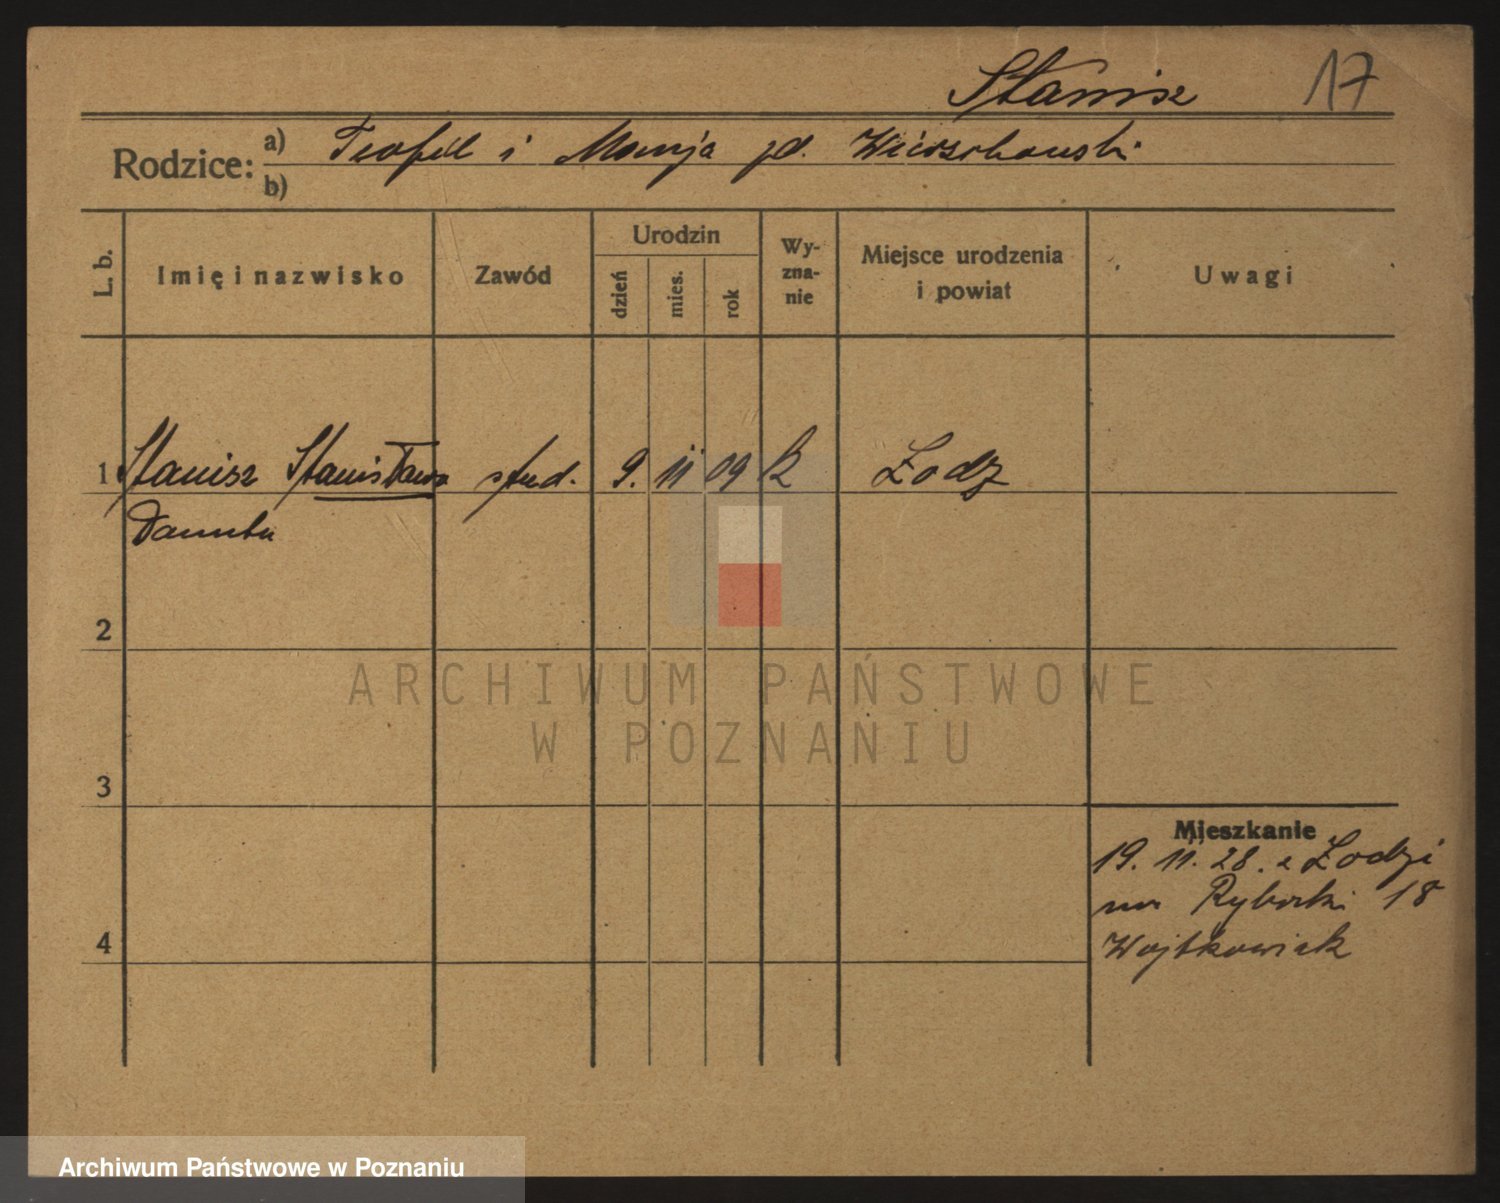 Stanisz 17
Rodzice: a) Teofil i Marja zd. Wierzchowski
b)
L. b. Imię i nazwisko Zawód Urodzin dzień mies. rok Wy-zna-nie Miejsce urodzenia i powiat Uwagi
1 Stanisz Stanisława stud. 9. 11 09 k Łodz
Danuta
2
ARCHIWUM PAŃSTWOWE
W POZNANIU
3
Mieszkanie
19. 11. 28. z Łodzi
na Rybaki 18
4 Wojtkowiak
Archiwum Państwowe w Poznaniu